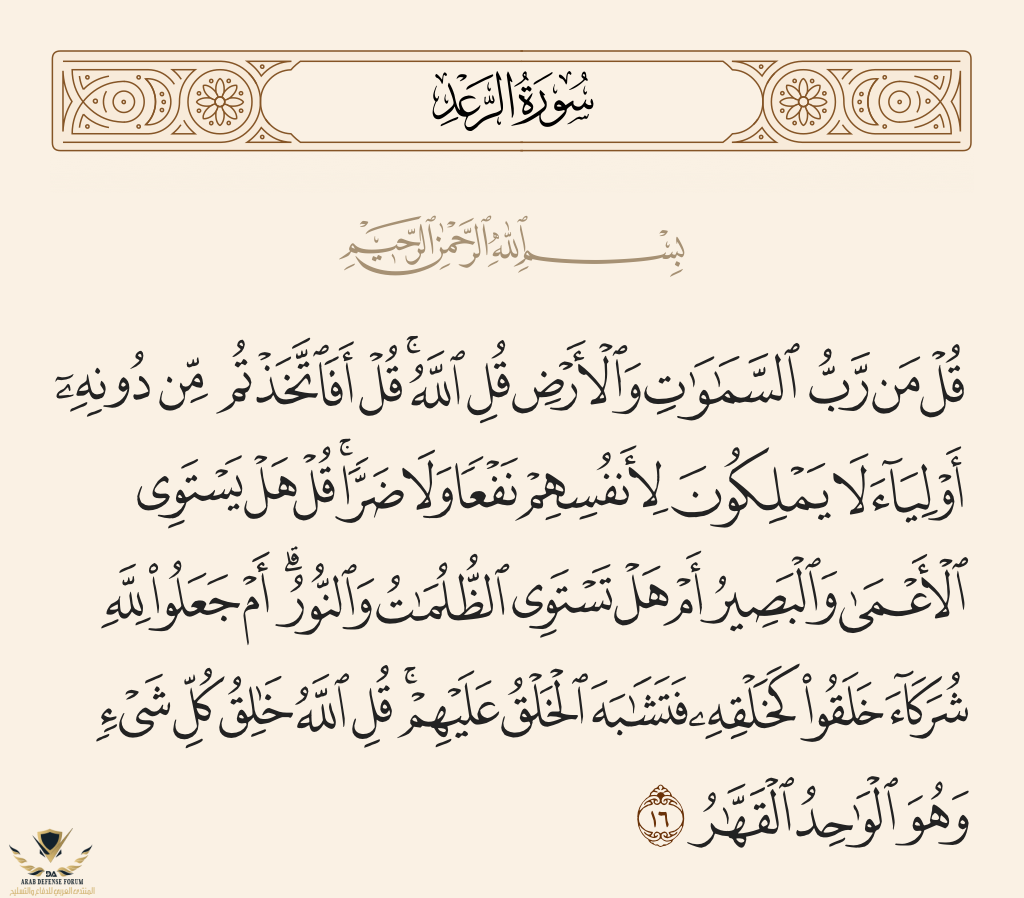 سُورَةُ الرَّعْدِ
بِسْمِ ٱللَّهِ ٱلرَّحْمَٰنِ ٱلرَّحِيمِ
قُلْ مَن رَّبُّ ٱلسَّمَٰوَٰتِ وَٱلْأَرْضِ قُلِ ٱللَّهُ ۚ قُلْ أَفَٱتَّخَذْتُم مِّن دُونِهِۦٓ
أَوْلِيَآءَ لَا يَمْلِكُونَ لِأَنفُسِهِمْ نَفْعًا وَلَا ضَرًّا ۚ قُلْ هَلْ يَسْتَوِى
ٱلْأَعْمَىٰ وَٱلْبَصِيرُ أَمْ هَلْ تَسْتَوِى ٱلظُّلُمَٰتُ وَٱلنُّورُ ۗ أَمْ جَعَلُوا۟ لِلَّهِ
شُرَكَآءَ خَلَقُوا۟ كَخَلْقِهِۦ فَتَشَٰبَهَ ٱلْخَلْقُ عَلَيْهِمْ ۚ قُلِ ٱللَّهُ خَٰلِقُ كُلِّ شَىْءٍ
وَهُوَ ٱلْوَٰحِدُ ٱلْقَهَّٰرُ ١٦
DA
ARAB DEFENSE FORUM
المنتدى العربي للدفاع والتسليح